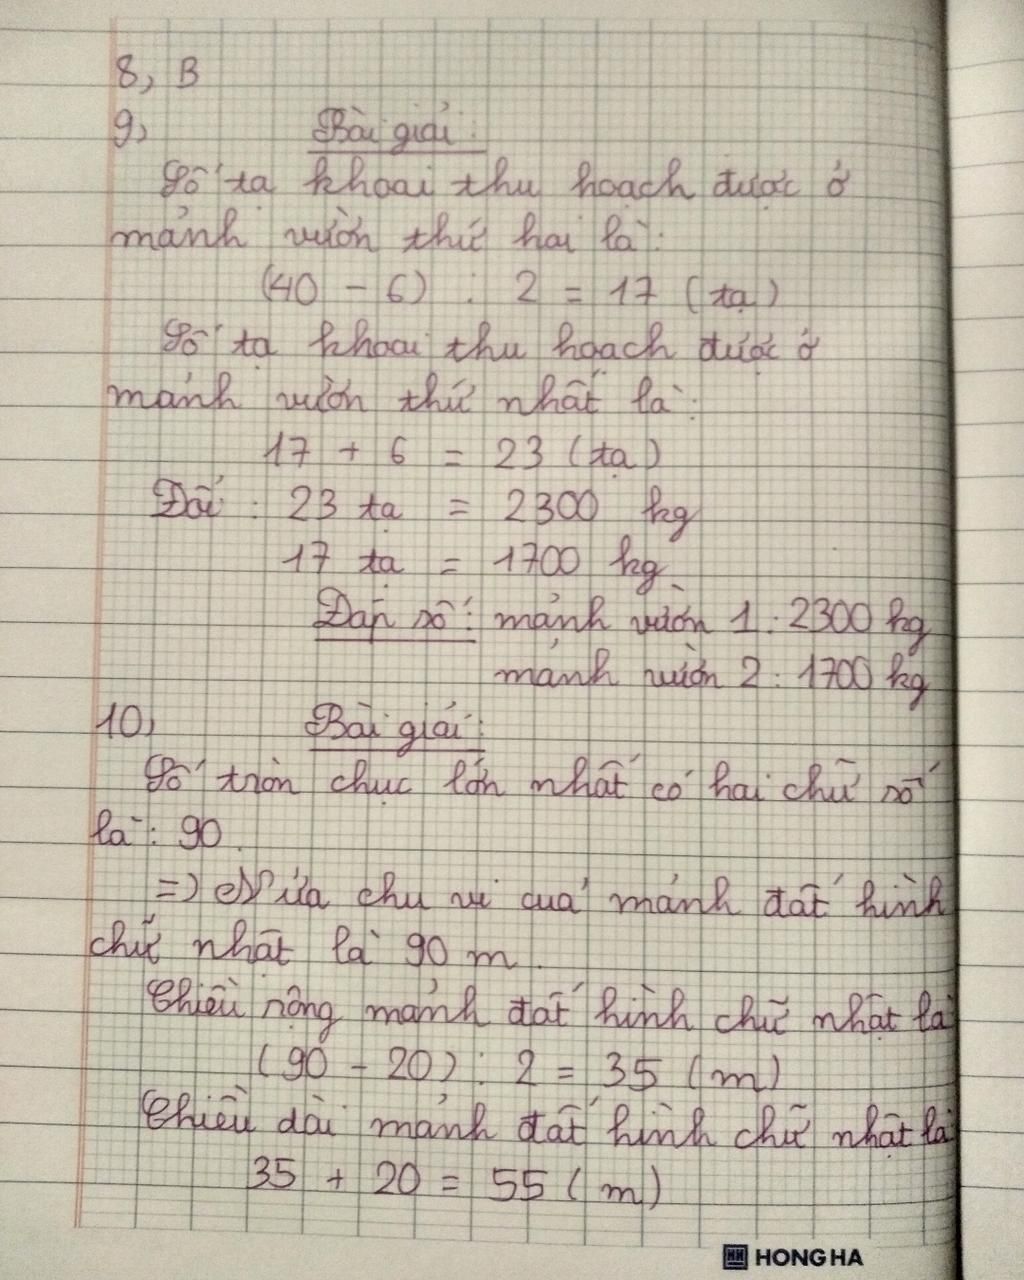 8, B
9, Bài giải:
Số tạ khoai thu hoạch được ở
mảnh vườn thứ hai là:
(40 - 6) : 2 = 17 (tạ)
Số tạ khoai thu hoạch được ở
mảnh vườn thứ nhất là:
17 + 6 = 23 (tạ)
Đổi: 23 tạ = 2300 kg
17 tạ = 1700 kg
Đáp số: mảnh vườn 1: 2300 kg
mảnh vườn 2: 1700 kg
10, Bài giải:
Số tròn chục lớn nhất có hai chữ số
là: 90.
=> Nửa chu vi cuả mảnh đất hình
chữ nhật là 90 m.
Chiều rộng mảnh đất hình chữ nhật là
(90 - 20) : 2 = 35 (m)
Chiều dài mảnh đất hình chữ nhật là
35 + 20 = 55 (m)
HONG HA